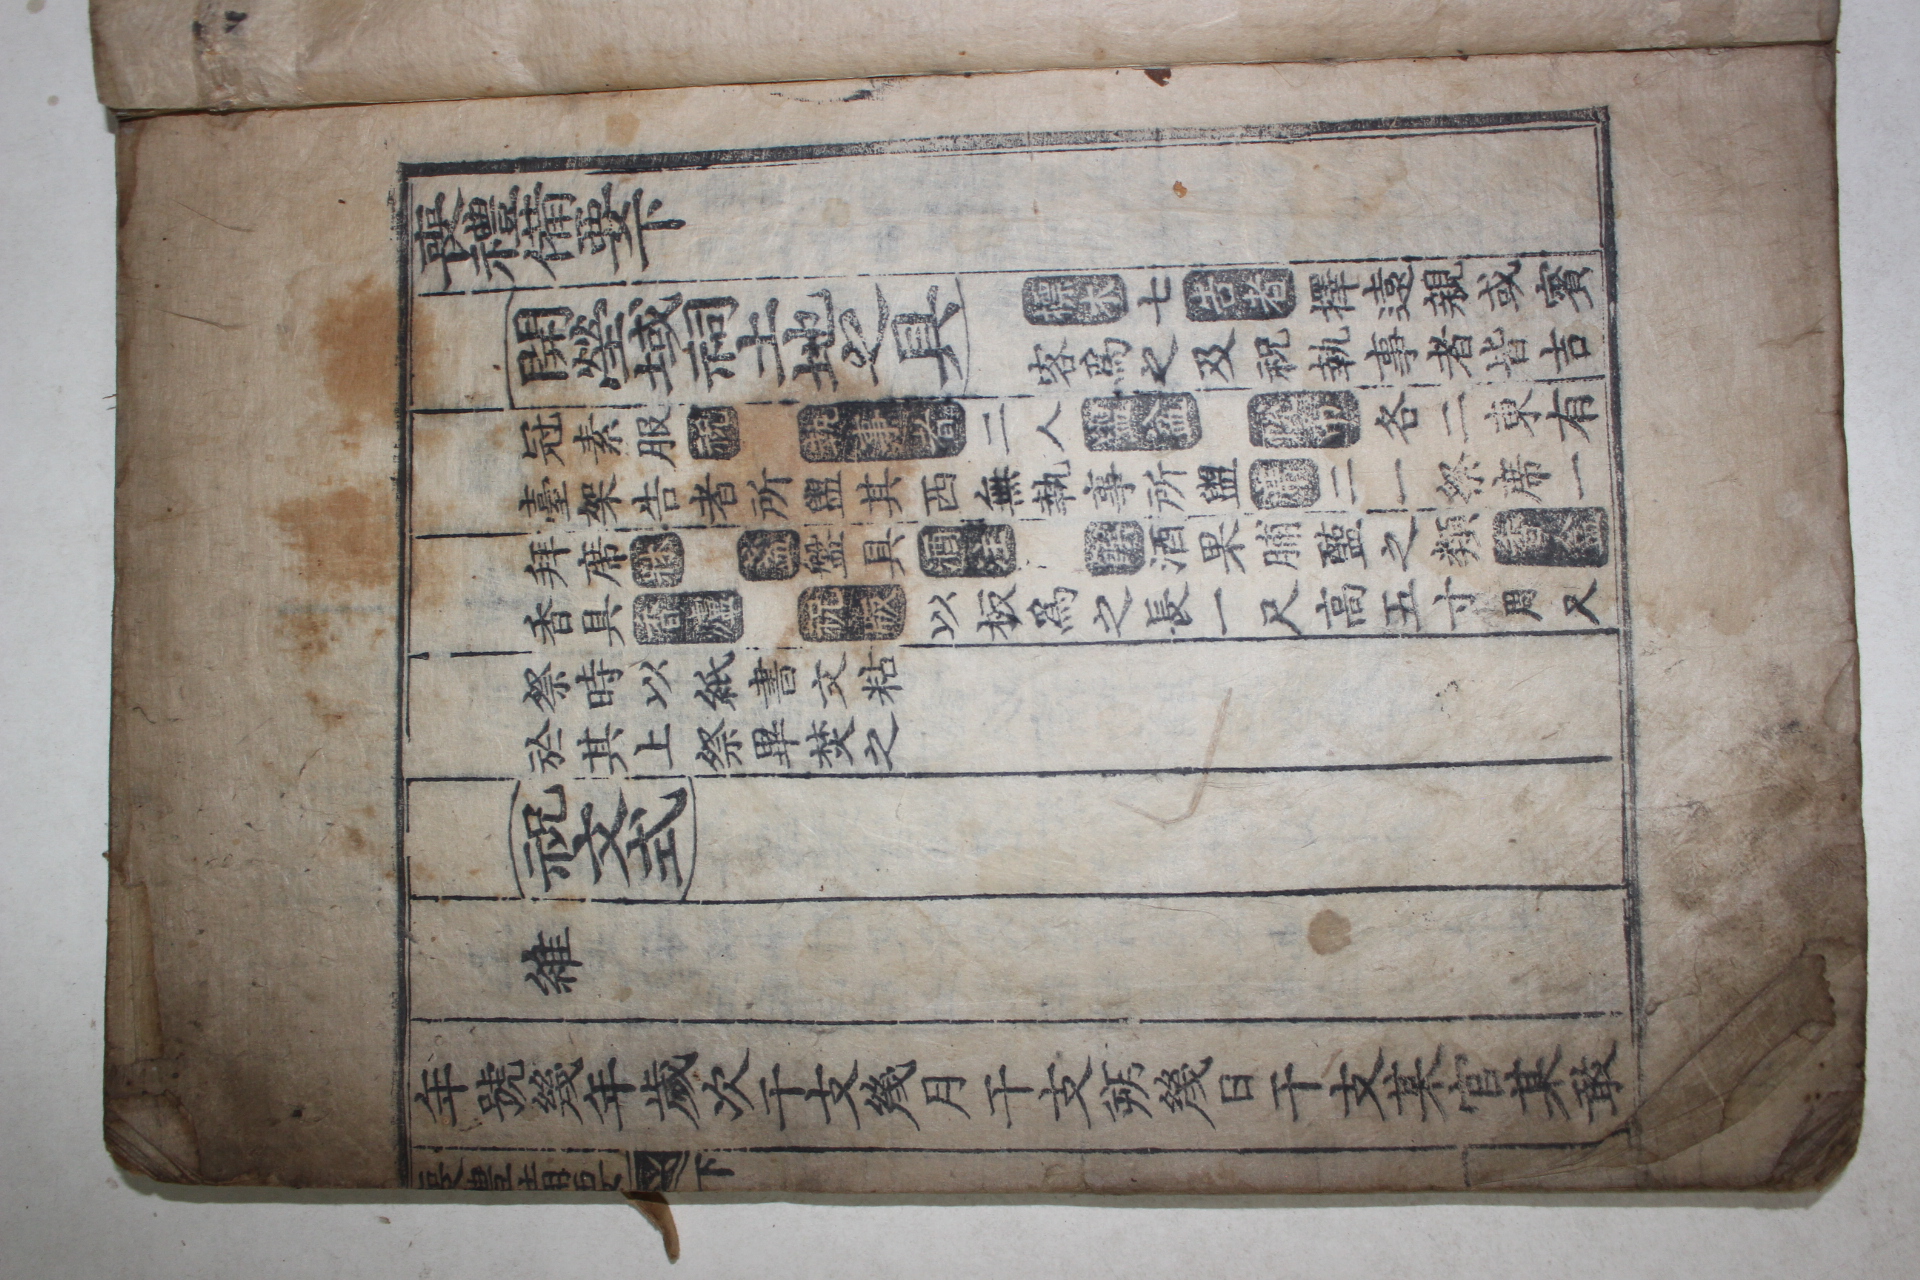 喪禮備要下
開塋域祠土地之具
標木七告者擇遠親或賓
客爲之及祝執事者皆吉
冠素服祝執事者二人盥盆帨巾各二東有
臺架告者所盥其西無執事所盥席二一祭席一
拜席牀盞盤具酒注饌酒果脯醢之類香盒
香具香爐祝板以板爲之長一尺高五寸周尺
祭時以紙書文粘
於其上祭畢焚之
祝文式
維
年號幾年歲次干支幾月干支朔幾日干支某官某敢
喪禮備要 下